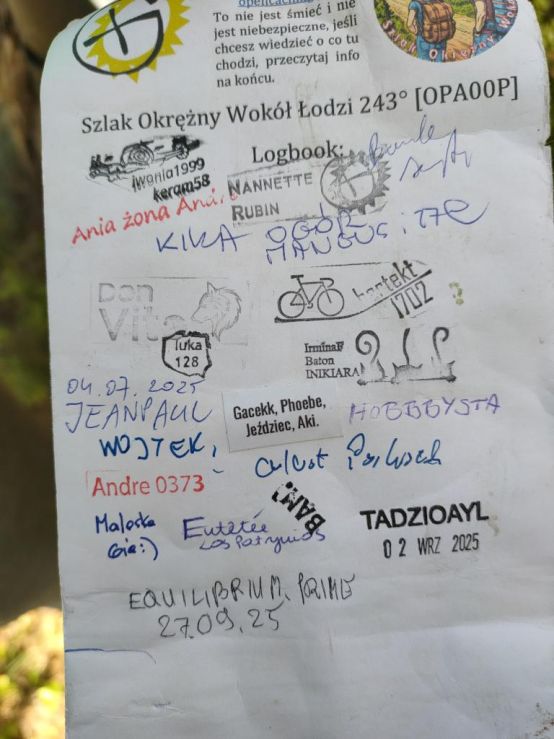 opencaching
To nie jest śmieć i nie
jest niebezpieczne, jeśli
chcesz wiedzieć o co tu
chodzi, przeczytaj info
na końcu.
Szlak Okrężny Wokół Łodzi 243° [OPA00P]
Logbook:
iwonia1999
keram58
NANNETTE
RUBIN
Ania żona
KIKA OGÓR
MANGUS
Don
Vito
bartekt
1702
?
Tuka
128
IrminaF
Baton
INIKIARA
04.07.2025
JEANPAUL
Gacekk, Phoebe,
Jeździec, Aki.
HOBBYSTA
WOJTEK,
Andre 0373
BAM!
TADZIOAYL
02 WRZ 2025
EQUILIBRIUM.PRIME
27.09.25